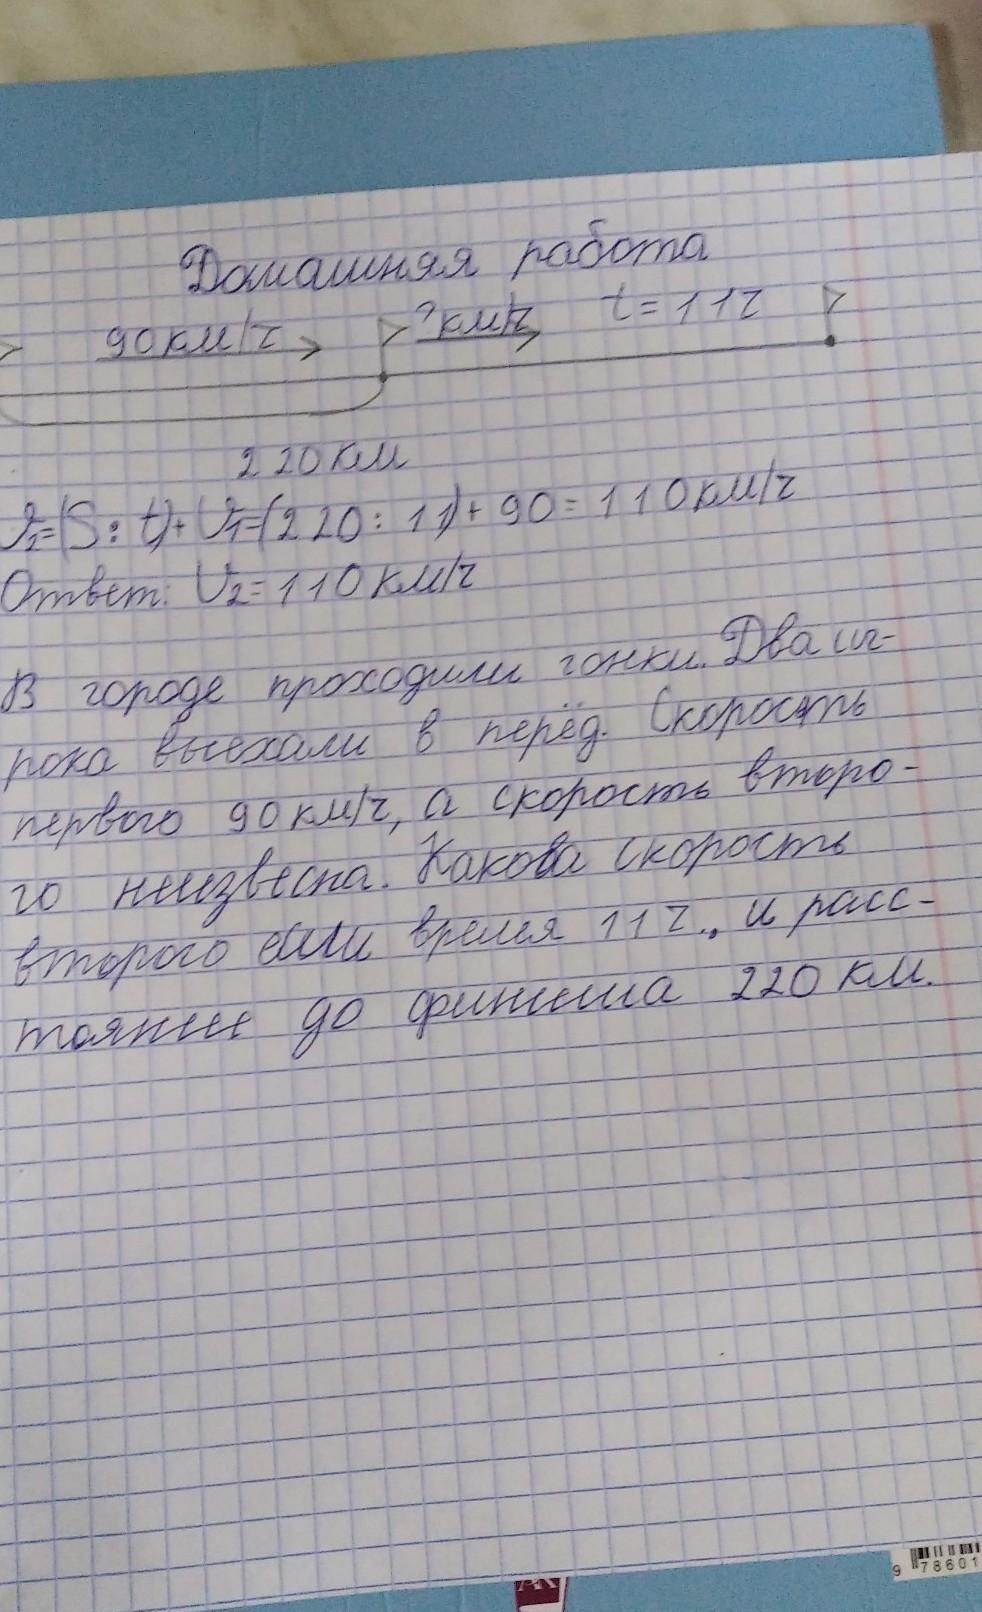 Домашняя работа
90 км/ч ? км/ч t = 11 ч
220 км
υ₂=(S : t)+ υ₁=(220 : 11)+ 90 = 110 км/ч
Ответ: υ₂=110 км/ч
В городе проходили гонки. Два иг-
рока выехали в перёд. Скорость
первого 90 км/ч, а скорость второ-
го неизвесна. Какова скорость
второго если время 11 ч., и расс-
тояние до финиша 220 км.
9 78601